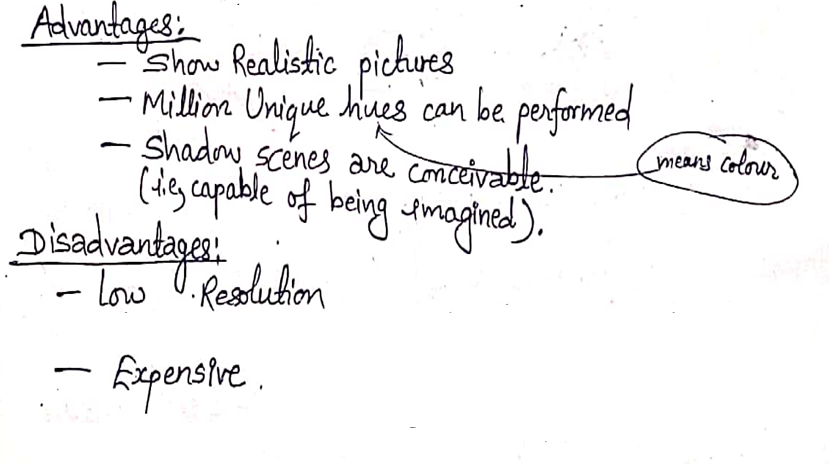 Advantages:
— Show Realistic pictures
— Million Unique hues can be performed
— Shadow scenes are conceivable.
means colour
(i.e, capable of being imagined).
Disadvantages:
— Low Resolution
— Expensive.